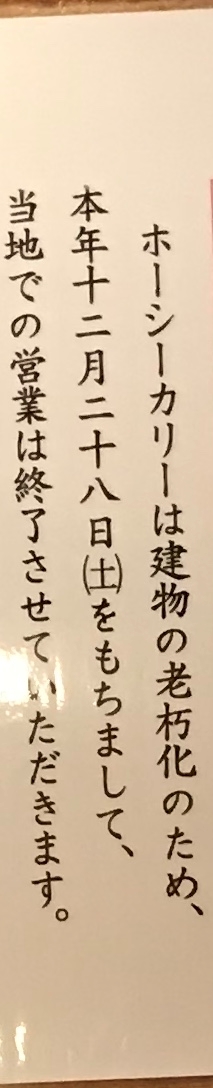 ホーシーカリーは建物の老朽化のため、
本年十二月二十八日㈯をもちまして、
当地での営業は終了させていただきます。